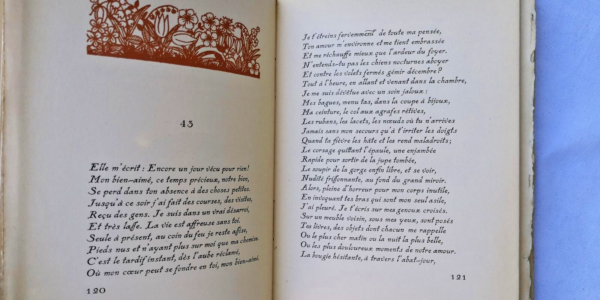 45
Elle m'écrit : Encore un jour vécu pour rien!
Mon bien-aimé, ce temps précieux, notre bien,
Se perd dans ton absence à des choses petites.
Jusqu'à ce soir j'ai fait des courses, des visites,
Reçu des gens. Je suis dans un vrai désarroi,
Et très lasse. La vie est affreuse sans toi.
Seule à présent, au coin du feu je reste assise,
Pieds nus et n'ayant plus sur moi que ma chemise.
C'est le tardif instant, dès l'aube réclamé,
Où mon cœur peut se fondre en toi, mon bien-aimé.
120
Je t'étreins fervemment de toute ma pensée,
Ton amour m'environne et me tient embrassée
Et me réchauffe mieux que l'ardeur du foyer.
N'entends-tu pas les chiens nocturnes aboyer
Et contre les volets fermés gémir décembre?
Tout à l'heure, en allant et venant dans la chambre,
Je me suis dévêtue avec un soin jaloux :
Mes bagues, menu tas, dans la coupe à bijoux,
Ma ceinture, le col aux agrafes rétives,
Les rubans, les lacets, les nœuds où tu n'arrives
Jamais sans mon secours qu'à t'irriter les doigts
Quand te fièvre les hâte et les rend maladroits;
Le corsage quittant l'épaule, une enjambée
Rapide pour sortir de la jupe tombée,
Le soupir de la gorge enfin libre, et se voir,
Nudité frissonnante, au fond du grand miroir.
Alors, pleine d'horreur pour mon corps inutile,
En invoquant tes bras qui sont mon seul asile,
J'ai pleuré. Je t'écris sur mes genoux croisés.
Sur un meuble voisin, sous mes yeux, sont posés
Tes livres, des objets dont chacun me rappelle
Ou le plus cher matin ou la nuit la plus belle,
Ou les plus douloureux moments de notre amour.
La bougie hésitante, à travers l'abat-jour,
121